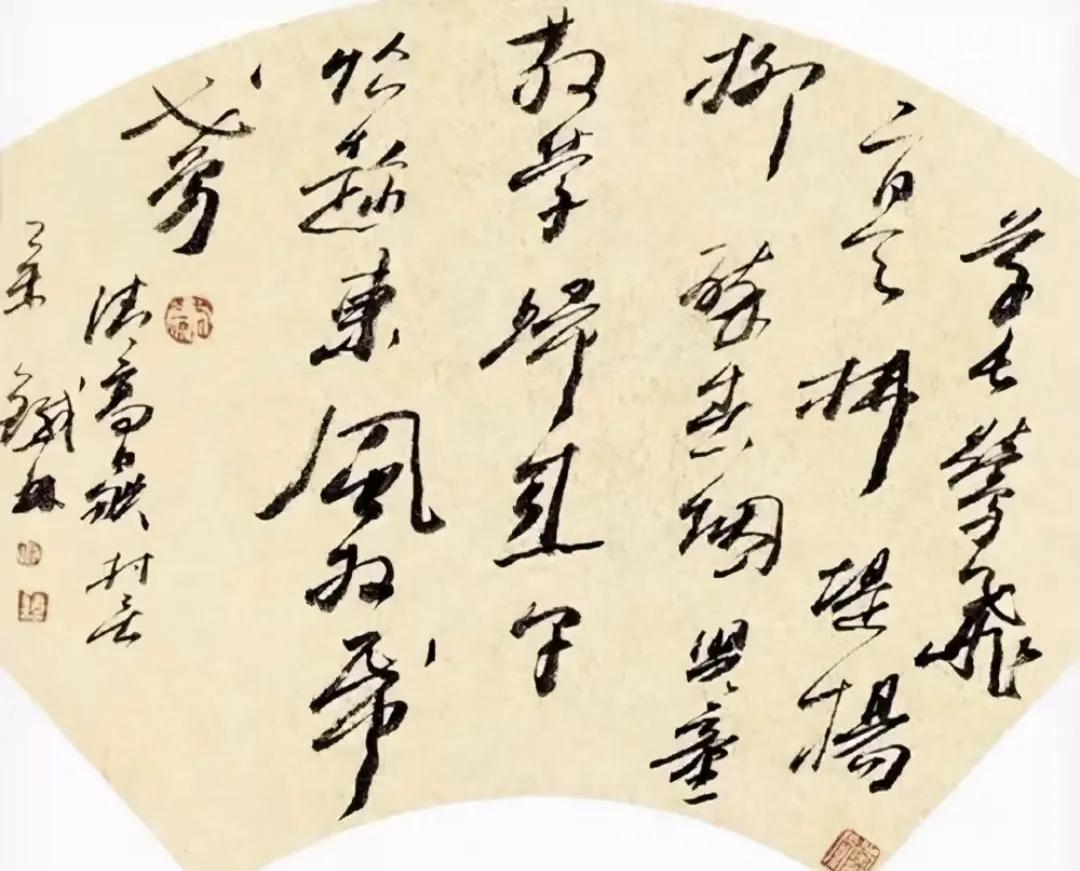 草長鶯飛
二月天拂堤楊
柳醉春烟兒童
散學歸來早
忙趁東風放紙
鳶
清高鼎村居
乙未鐵